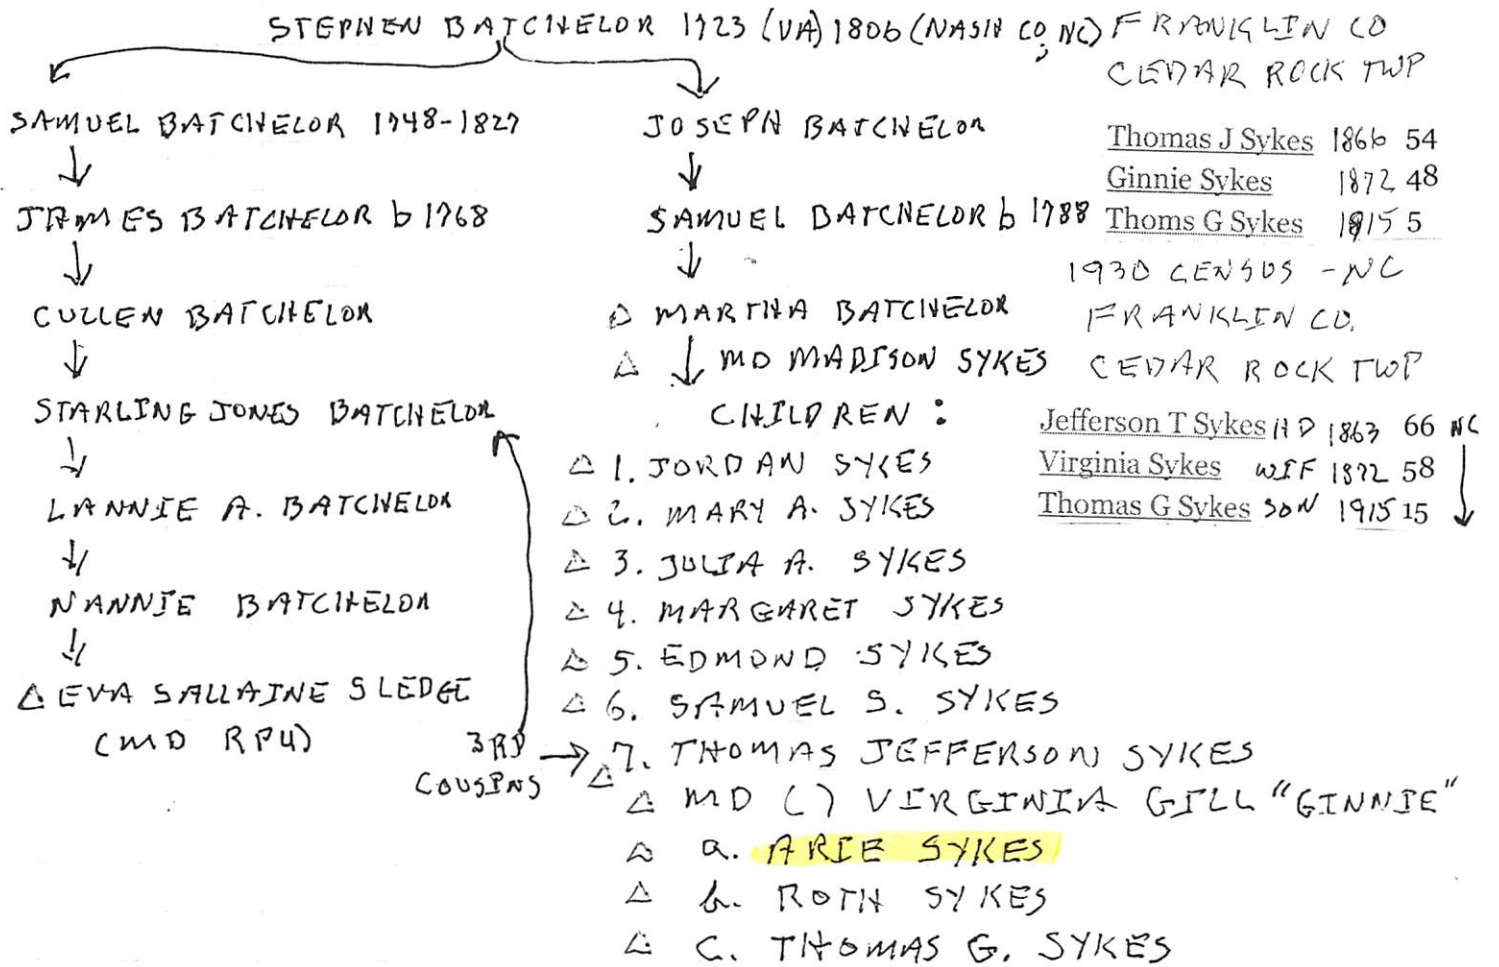 STEPHEN BATCHELOR 1723 (VA) 1806 (NASH CO, NC)
SAMUEL BATCHELOR 1748-1827
JAMES BATCHELOR b 1768
CULLEN BATCHELOR
STARLING JONES BATCHELOR
LANNIE A. BATCHELOR
NANNIE BATCHELOR
EVA SALLAINE SLEDGE
(MD RP4)
3RD
COUSINS
JOSEPH BATCHELOR
SAMUEL BATCHELOR b 1788
MARTHA BATCHELOR
MD MADISON SYKES
CHILDREN:
1. JORDAN SYKES
2. MARY A. SYKES
3. JULIA A. SYKES
4. MARGARET SYKES
5. EDMOND SYKES
6. SAMUEL S. SYKES
7. THOMAS JEFFERSON SYKES
MD ( ) VIRGINIA GILL "GINNIE"
a. ARIE SYKES
b. ROTH SYKES
C. THOMAS G. SYKES
FRANKLIN CO
CEDAR ROCK TWP
Thomas J Sykes 1866 54
Ginnie Sykes 1872 48
Thoms G Sykes 1915 5
1930 CENSUS - NC
FRANKLIN CO.
CEDAR ROCK TWP
Jefferson T Sykes HD 1863 66 NC
Virginia Sykes WIF 1872 58
Thomas G Sykes SON 1915 15